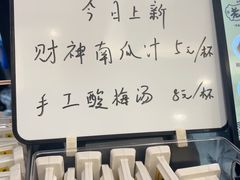 今日上新
财神南瓜汁 5元/杯
手工酸梅汤 8元/杯